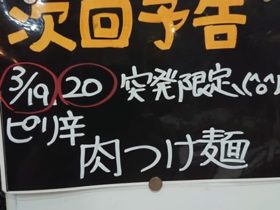 次回予告
3/19. 20 突発限定、\(^o^)
ピリ辛
肉つけ麺